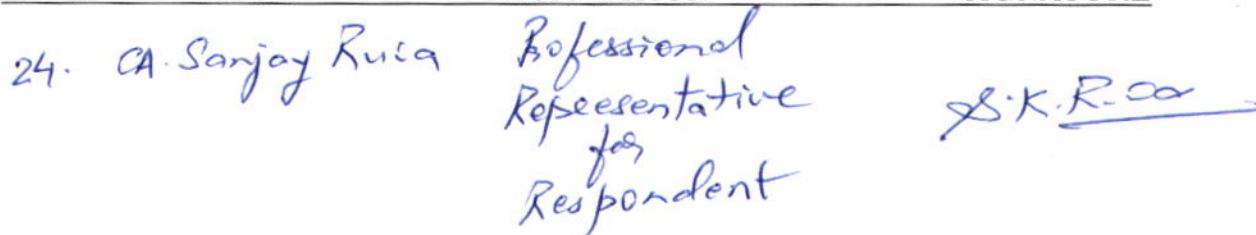 24. CA. Sanjay Ruia Professional
Representative
for
Respondent
S.K.R